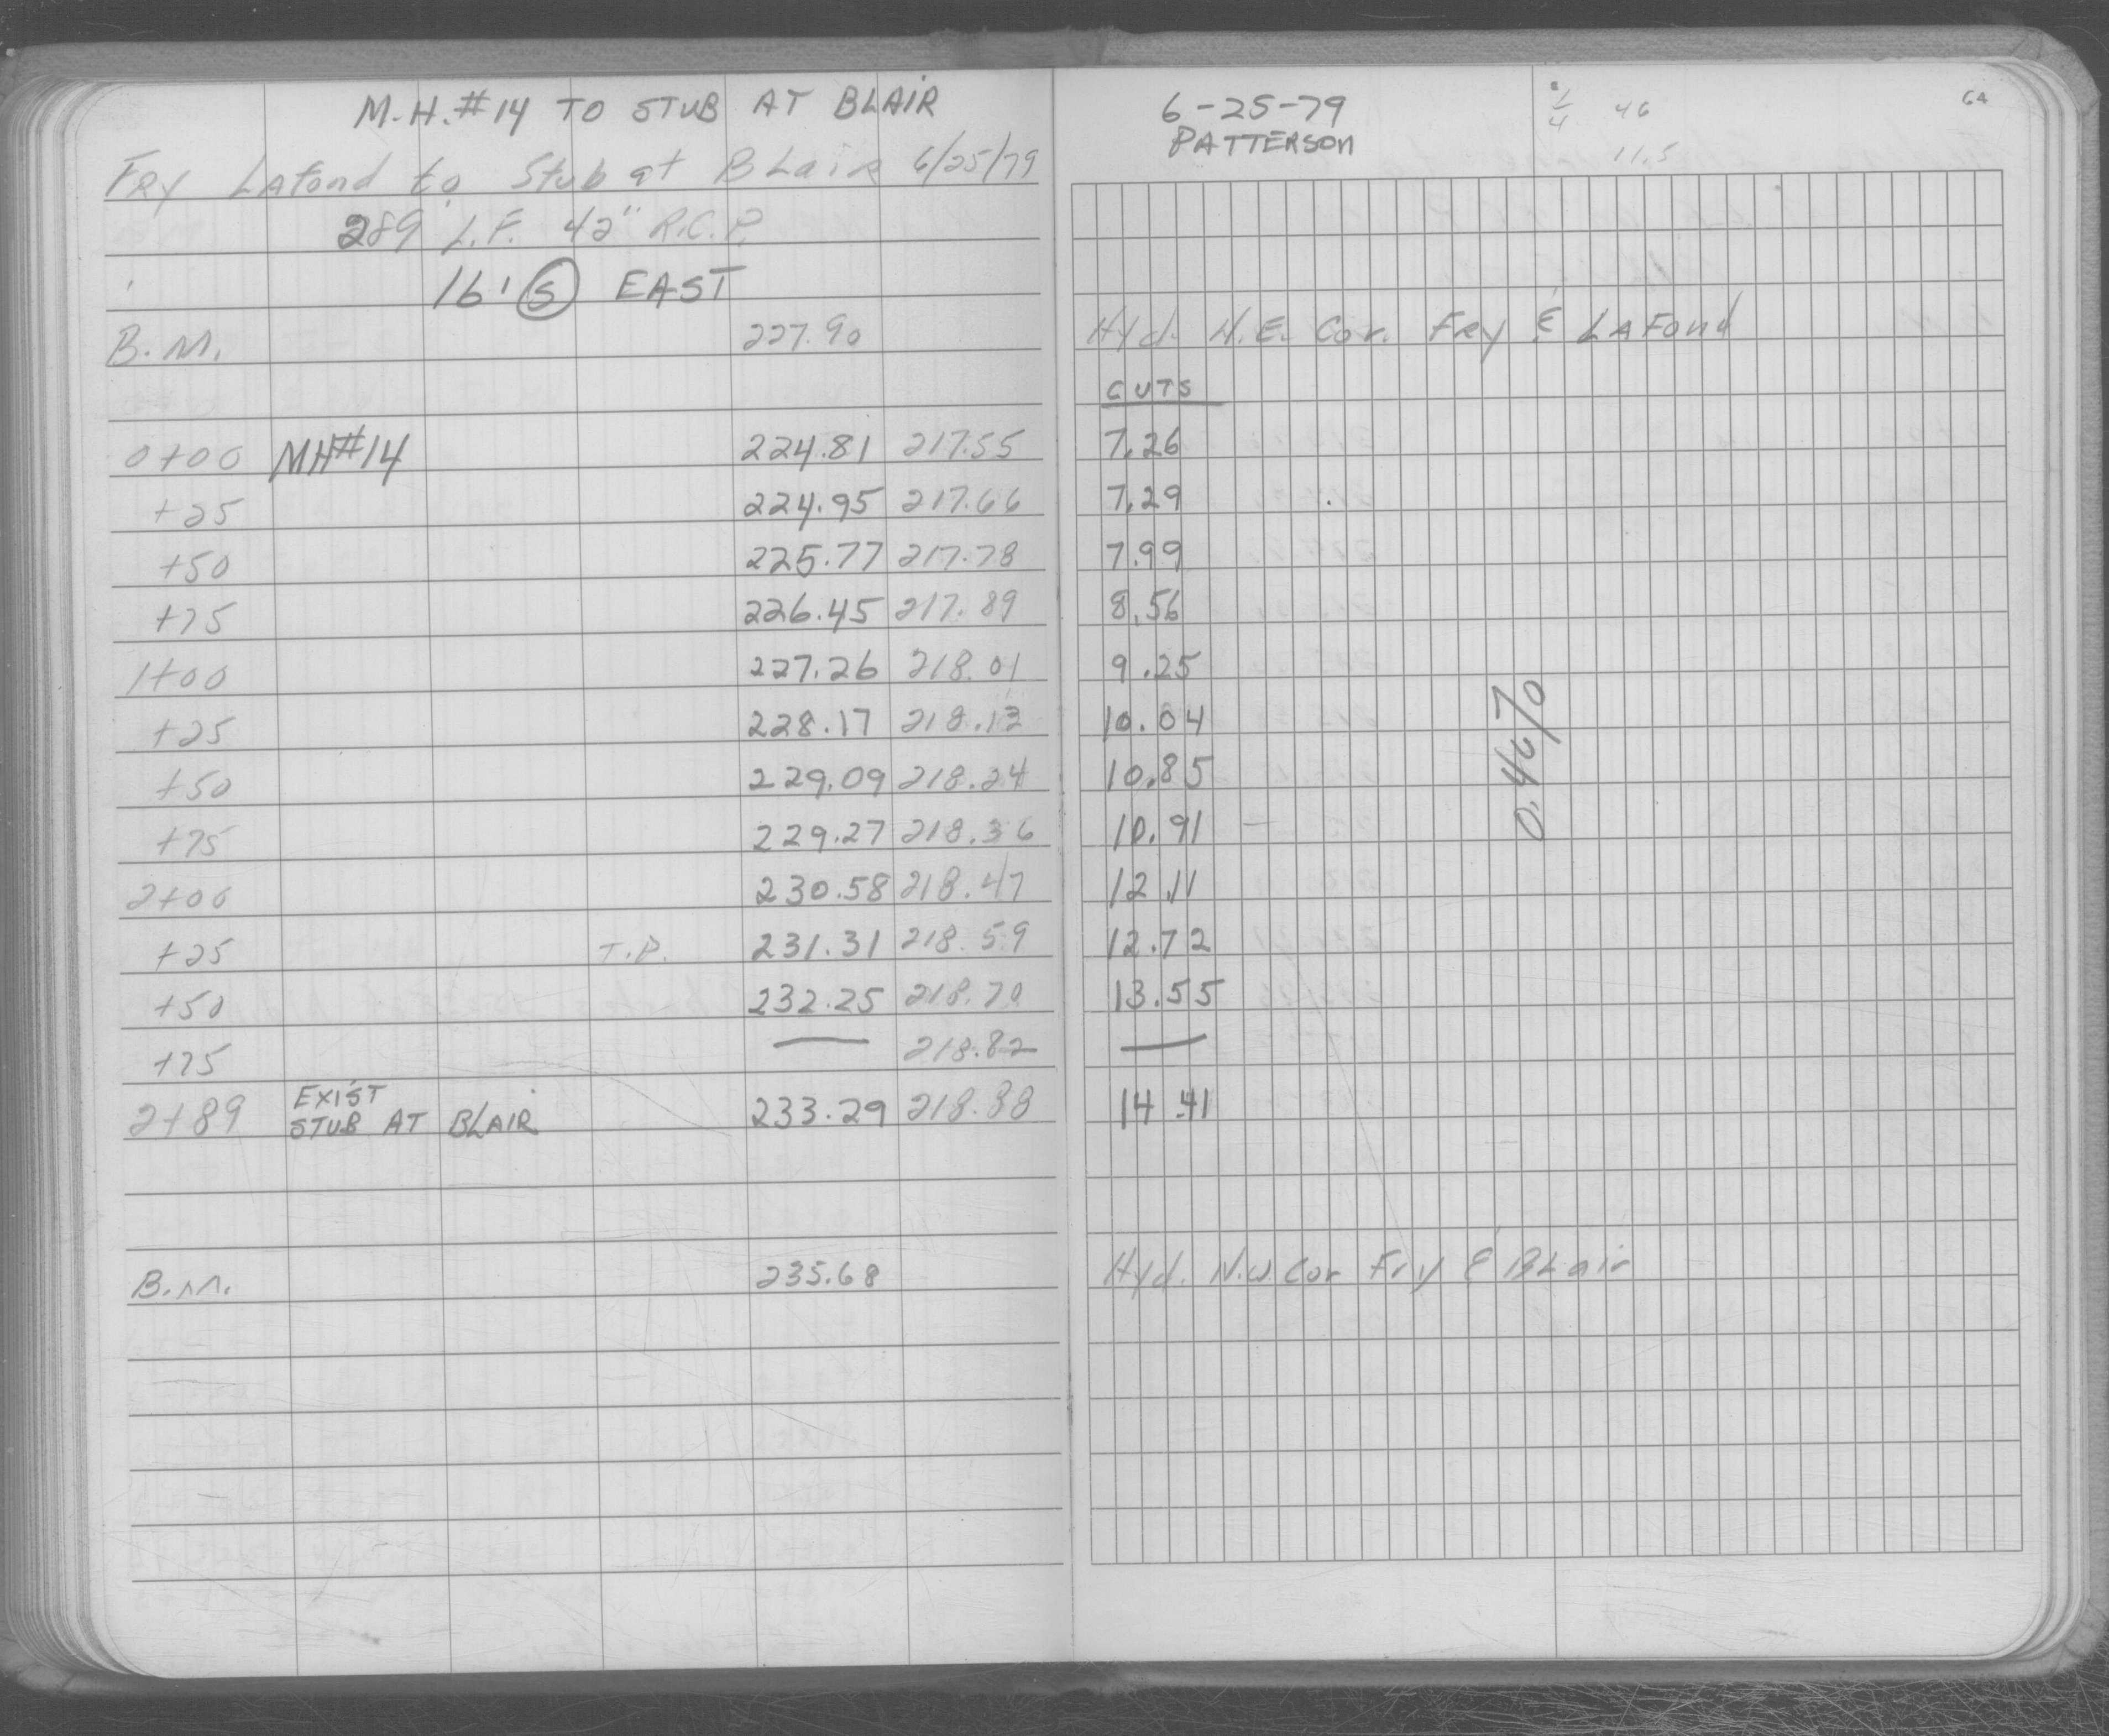 M.H.#14 TO STUB AT BLAIR
FRY LAfond to Stub at BLAIR 6/25/79
289 L.F. 42" R.C.P.
16' S EAST
B.M. 227.90
0+00 MH#14 224.81 217.55
+25 224.95 217.66
+50 225.77 217.78
+75 226.45 217.89
1+00 227.26 218.01
+25 228.17 218.13
+50 229.09 218.24
+75 229.27 218.36
2+00 230.58 218.47
+25 T.P. 231.31 218.59
+50 232.25 218.70
+75 — 218.82
EXIST
2+89 STUB AT BLAIR 233.29 218.88
B.M. 235.68
6-25-79
PATTERSON
1/4 46
11.5
64
Hyd. N.E. Cor. FRY & LAFond
CUTS
7.26
7.29
7.99
8.56
9.25
10.04
10.85
10.91 —
12.11
12.72
13.55
—
14.41
0.46%
Hyd. N.W Cor Fry & BLair